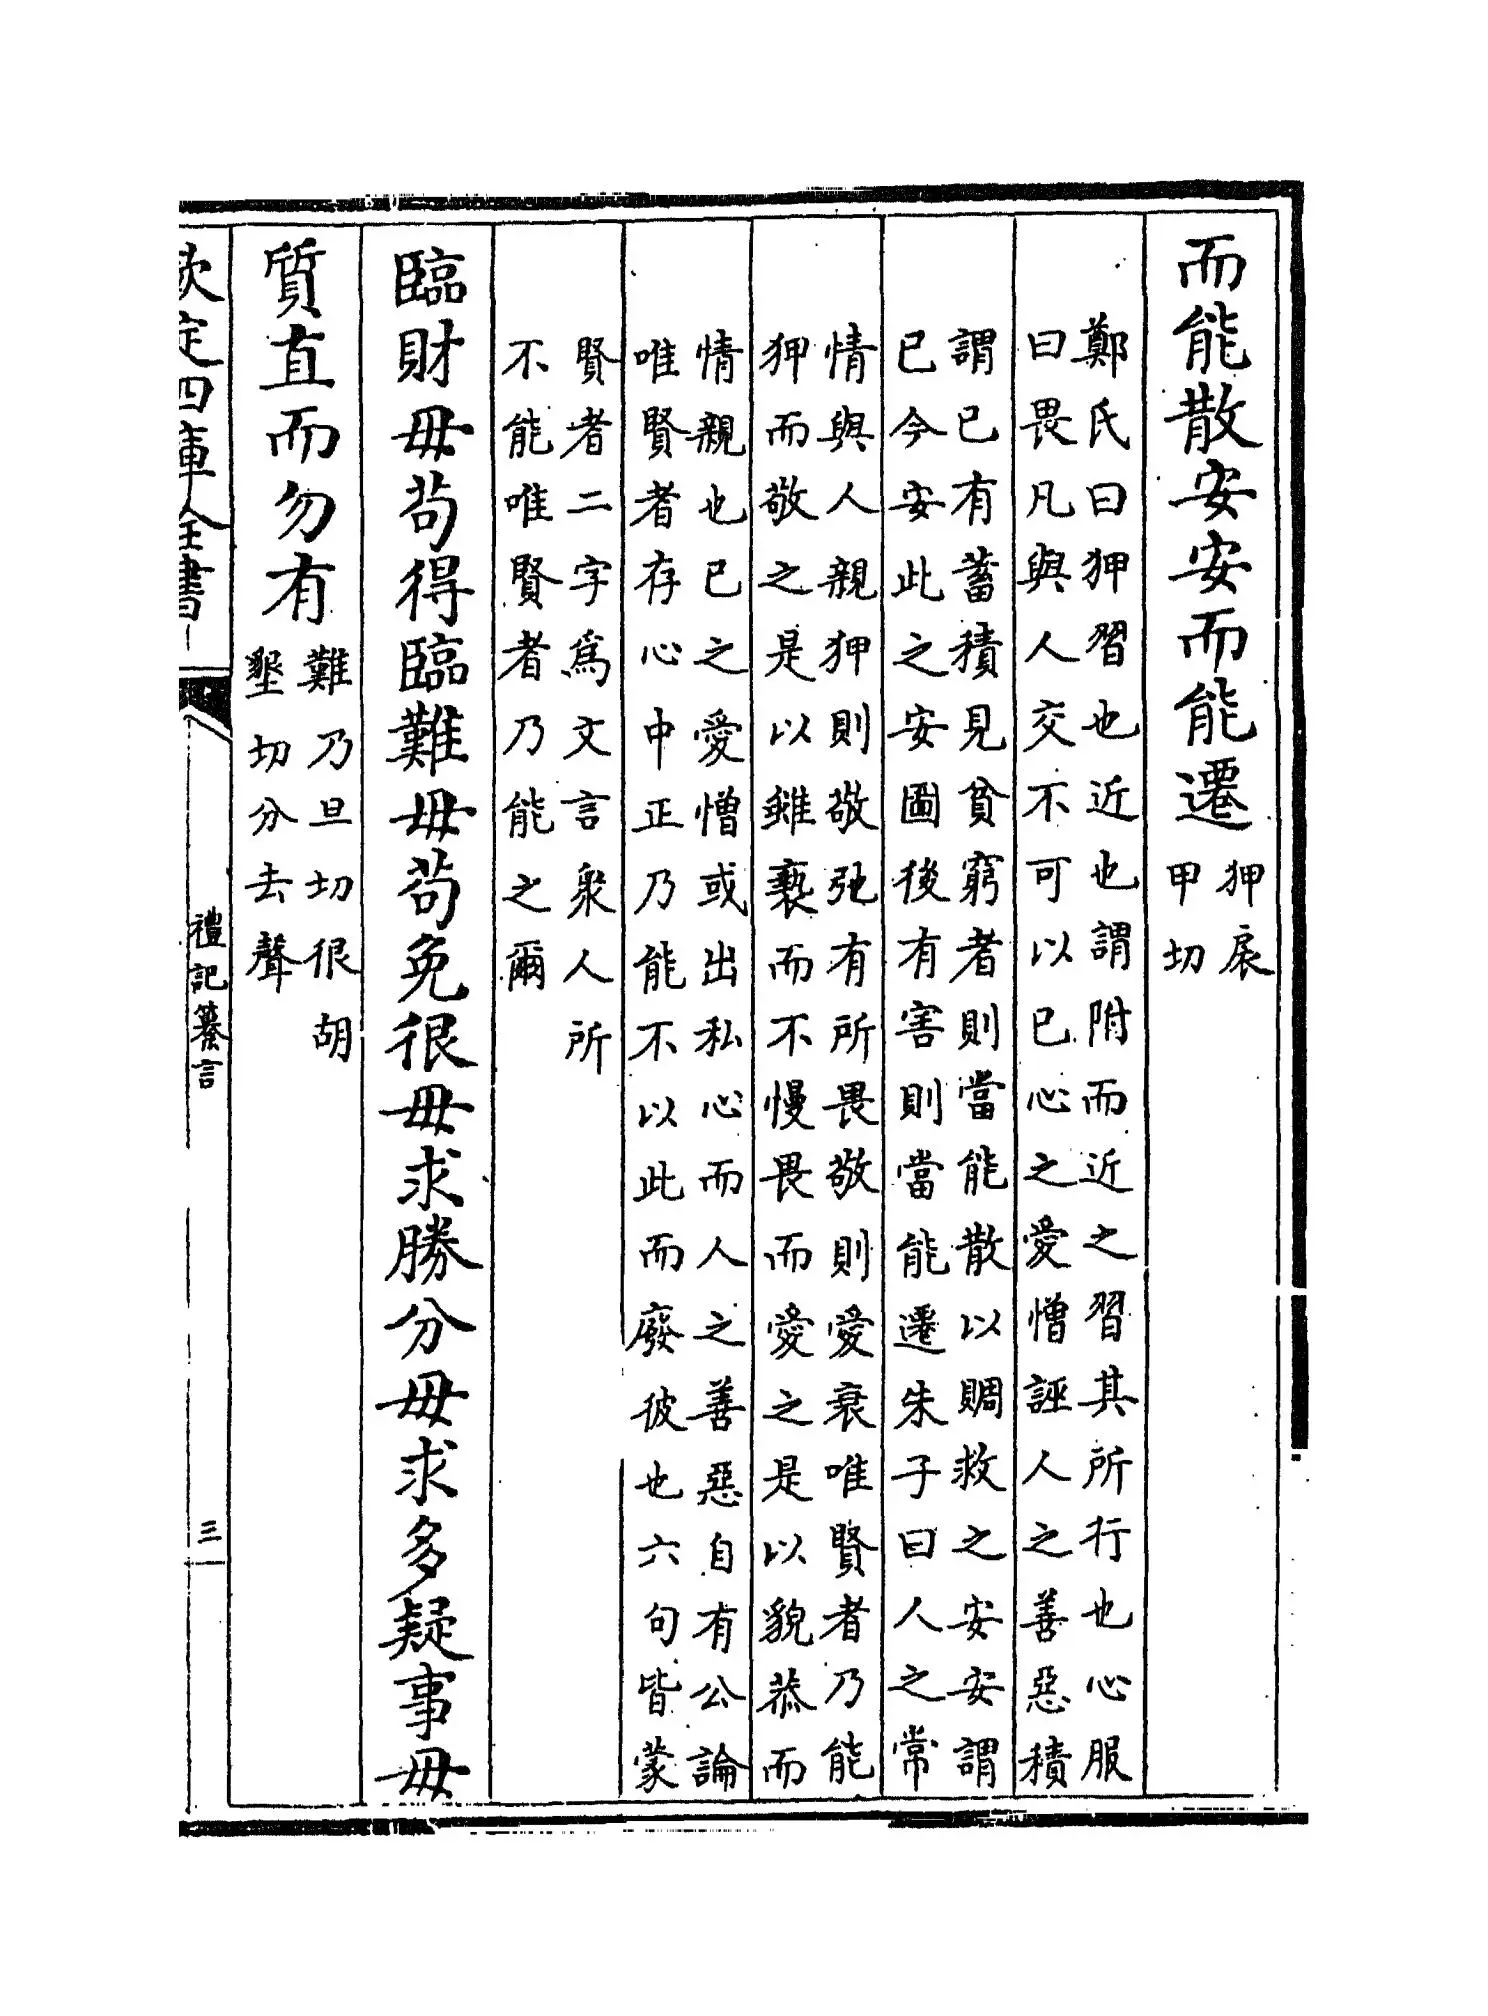 而能散安安而能遷狎戾
甲切
鄭氏曰狎習也近也謂附而近之習其所行也心服
曰畏凡與人交不可以已心之愛憎誣人之善惡積
謂已有蓄積見貧窮者則當能散以賙救之安安謂
已今安此之安圖後有害則當能遷朱子曰人之常
情與人親狎則敬弛有所畏敬則愛衰唯賢者乃能
狎而敬之是以雖褻而不慢畏而愛之是以貌恭而
情親也已之愛憎或出私心而人之善惡自有公論
唯賢者存心中正乃能不以此而廢彼也六句皆蒙
賢者二字為文言衆人所
不能唯賢者乃能之爾
臨財毋茍得臨難毋茍免很毋求勝分毋求多疑事毋
質直而勿有難乃旦切很胡
墾切分去聲
欽定四庫全書
禮記纂言
三